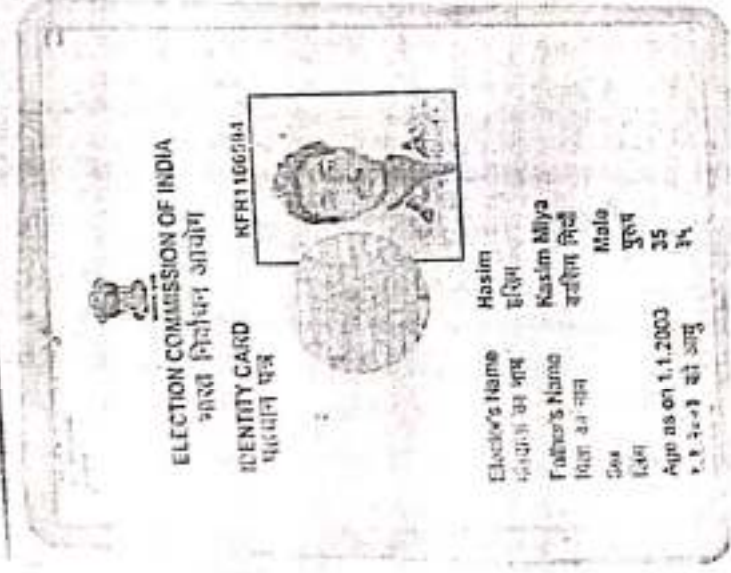 ELECTION COMMISSION OF INDIA
भारत निर्वाचन आयोग
IDENTITY CARD
पहचान पत्र
Elector's Name Hasim
का नाम हशिम
Father's Name Kasim Miya
पिता का नाम मियाँ
Sex Male
लिंग पुरुष
Age as on 1.1.2003 35
को आयु ३५